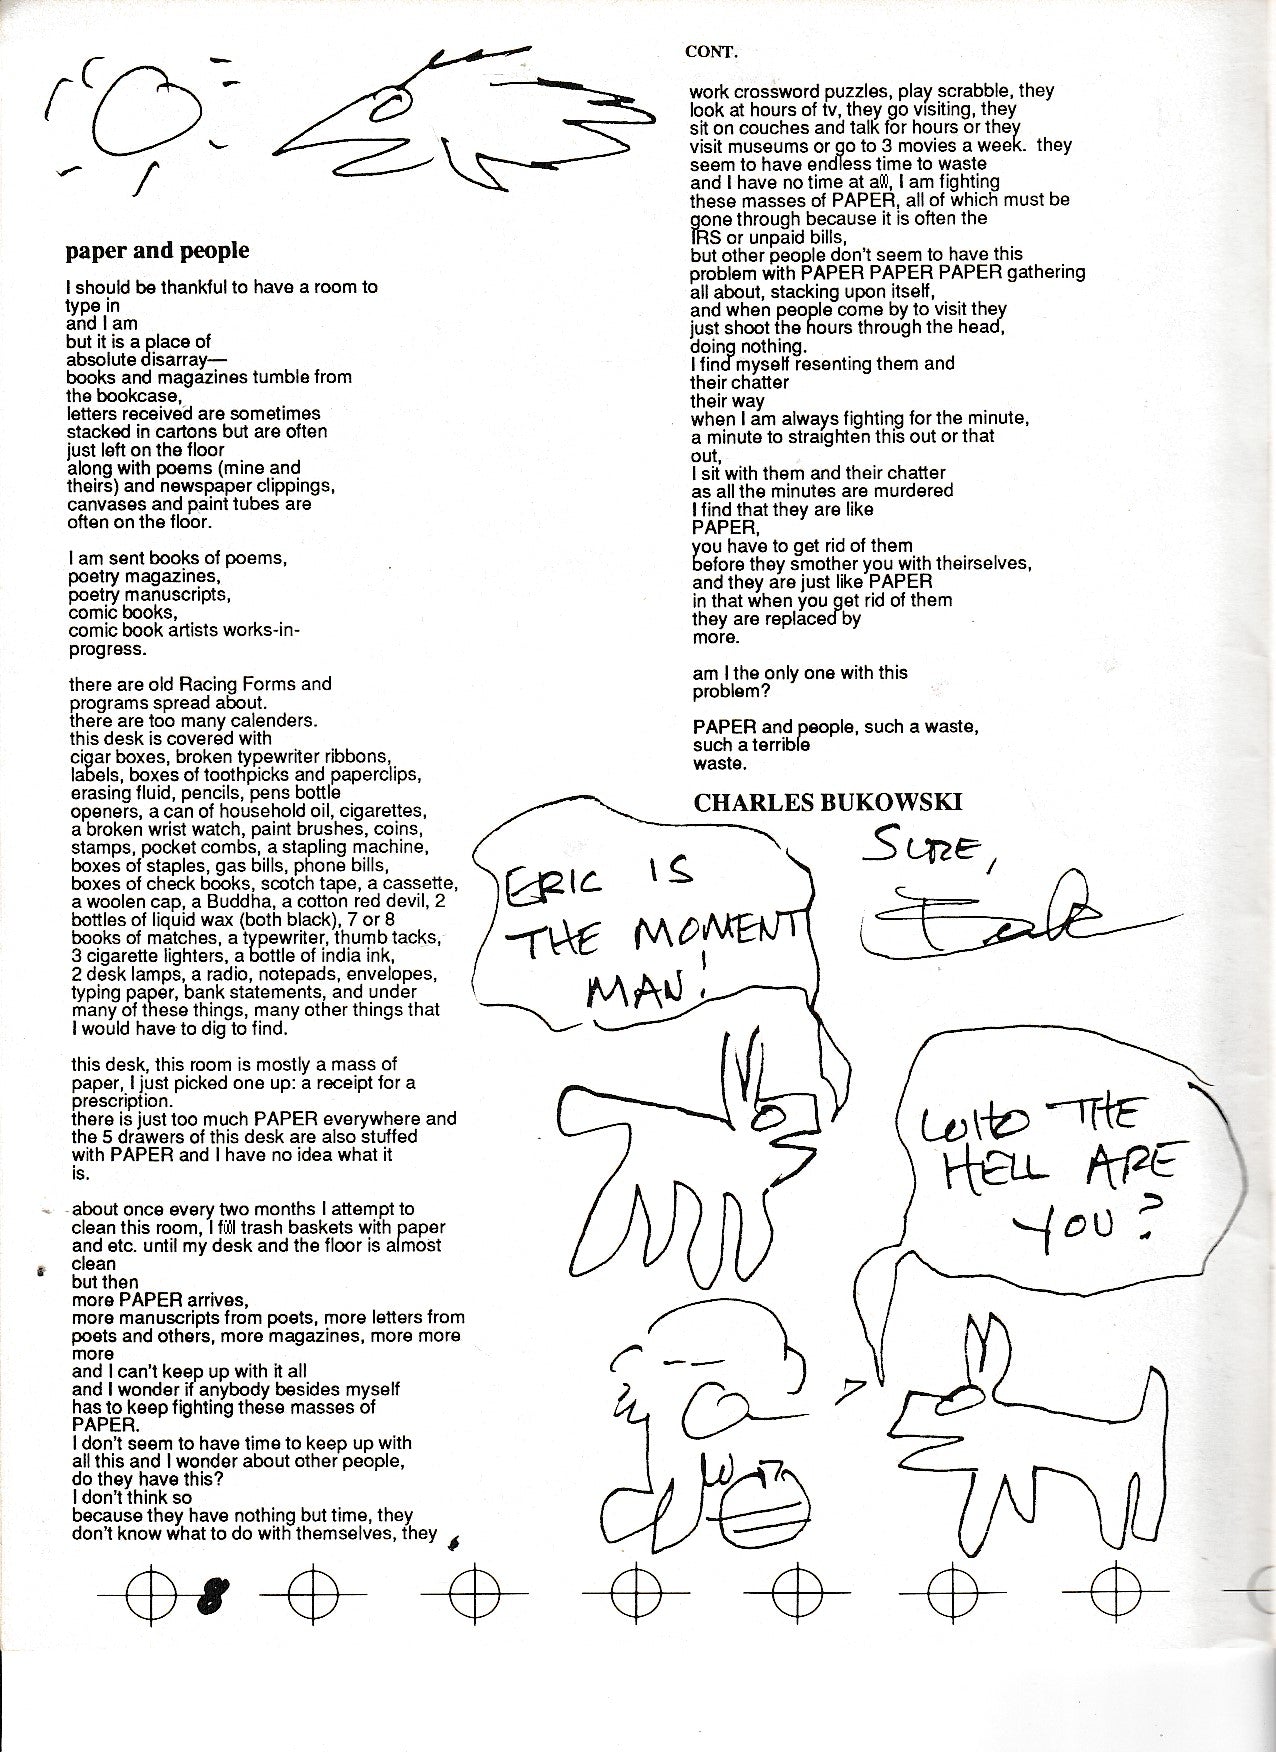 paper and people
I should be thankful to have a room to
type in
and I am
but it is a place of
absolute disarray—
books and magazines tumble from
the bookcase,
letters received are sometimes
stacked in cartons but are often
just left on the floor
along with poems (mine and
theirs) and newspaper clippings,
canvases and paint tubes are
often on the floor.
I am sent books of poems,
poetry magazines,
poetry manuscripts,
comic books,
comic book artists works-in-
progress.
there are old Racing Forms and
programs spread about.
there are too many calenders.
this desk is covered with
cigar boxes, broken typewriter ribbons,
labels, boxes of toothpicks and paperclips,
erasing fluid, pencils, pens bottle
openers, a can of household oil, cigarettes,
a broken wrist watch, paint brushes, coins,
stamps, pocket combs, a stapling machine,
boxes of staples, gas bills, phone bills,
boxes of check books, scotch tape, a cassette,
a woolen cap, a Buddha, a cotton red devil, 2
bottles of liquid wax (both black), 7 or 8
books of matches, a typewriter, thumb tacks,
3 cigarette lighters, a bottle of india ink,
2 desk lamps, a radio, notepads, envelopes,
typing paper, bank statements, and under
many of these things, many other things that
I would have to dig to find.
this desk, this room is mostly a mass of
paper, I just picked one up: a receipt for a
prescription.
there is just too much PAPER everywhere and
the 5 drawers of this desk are also stuffed
with PAPER and I have no idea what it
is.
about once every two months I attempt to
clean this room, I fill trash baskets with paper
and etc. until my desk and the floor is almost
clean
but then
more PAPER arrives,
more manuscripts from poets, more letters from
poets and others, more magazines, more more
more
and I can't keep up with it all
and I wonder if anybody besides myself
has to keep fighting these masses of
PAPER.
I don't seem to have time to keep up with
all this and I wonder about other people,
do they have this?
I don't think so
because they have nothing but time, they
don't know what to do with themselves, they
CONT.
work crossword puzzles, play scrabble, they
look at hours of tv, they go visiting, they
sit on couches and talk for hours or they
visit museums or go to 3 movies a week. they
seem to have endless time to waste
and I have no time at all, I am fighting
these masses of PAPER, all of which must be
gone through because it is often the
IRS or unpaid bills,
but other people don't seem to have this
problem with PAPER PAPER PAPER gathering
all about, stacking upon itself,
and when people come by to visit they
just shoot the hours through the head,
doing nothing.
I find myself resenting them and
their chatter
their way
when I am always fighting for the minute,
a minute to straighten this out or that
out,
I sit with them and their chatter
as all the minutes are murdered
I find that they are like
PAPER,
you have to get rid of them
before they smother you with theirselves,
and they are just like PAPER
in that when you get rid of them
they are replaced by
more.
am I the only one with this
problem?
PAPER and people, such a waste,
such a terrible
waste.
CHARLES BUKOWSKI
SURE,
ERIC IS
THE MOMENT
MAN!
WHO THE
HELL ARE
YOU?
8